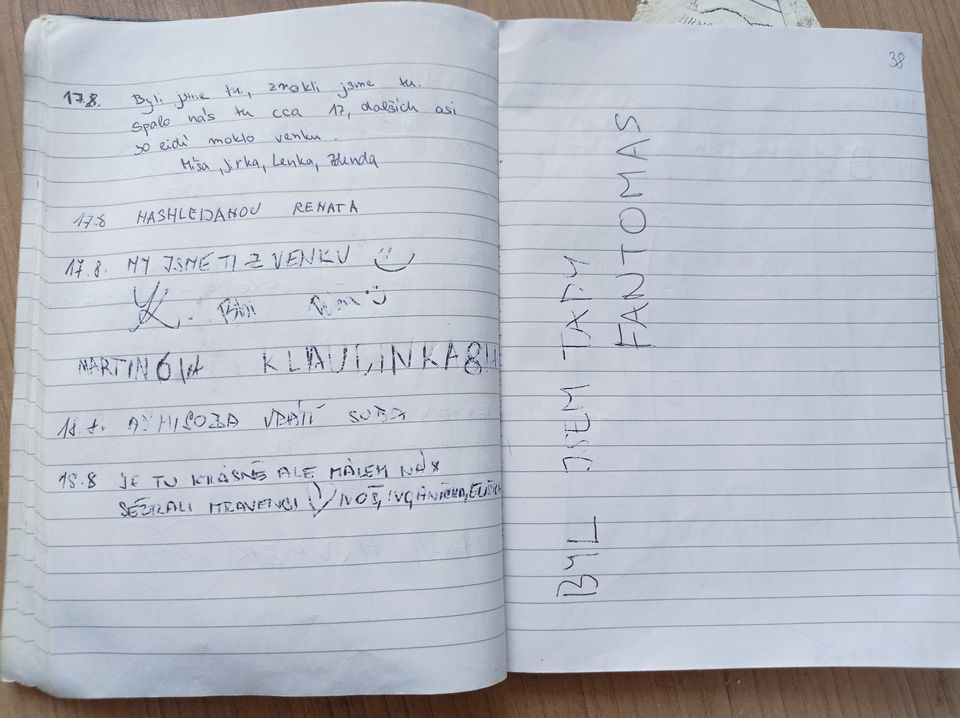 17.8. Byli jsme tu, zmokli jsme tu.
Spalo nás tu cca 17, dalších asi
30 lidí moklo venku.
Míša, Jirka, Lenka, Zdenda
17.8 NASHLEDANOU RENATA
17.8. MY JSME TI Z VENKU
MARTIN
18.8.
18.8 JE TU KRÁSNĚ ALE MÁLEM NÁS
SEŽRALI MRAVENCI
38
BYL JSEM TADY
FANTOMAS